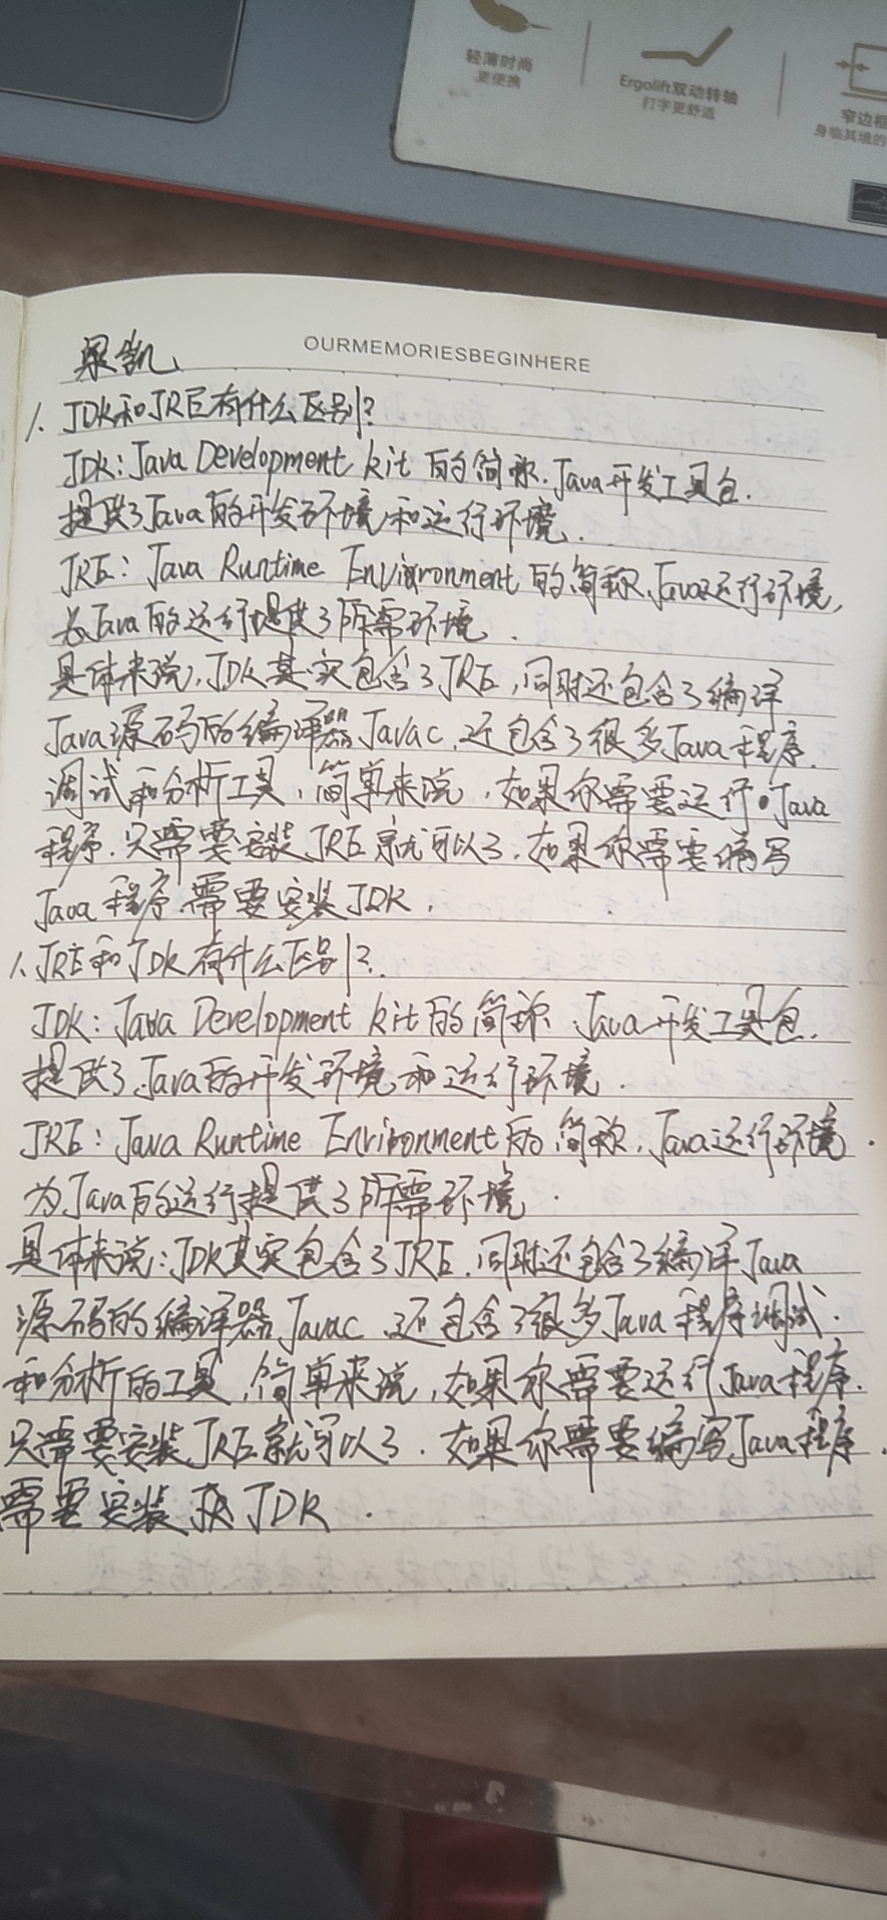 轻薄时尚
更便携
Ergolift双动转轴
打字更舒适
窄边框
身临其境的
OURMEMORIESBEGINHERE
1. JDK和JRE有什么区别?
JDK: Java Development kit 的简称. Java开发工具包.
提供了Java的开发环境和运行环境.
JRE: Java Runtime Environment 的简称, Java运行环境,
为Java的运行提供了所需环境.
具体来说, JDK其实包含了JRE, 同时还包含了编译
Java源码的编译器Javac, 还包含了很多Java程序.
调试和分析工具, 简单来说, 如果你需要运行Java
程序. 只需要安装JRE就可以了. 如果你需要编写
Java程序.需要安装JDK.
1. JRE和JDK有什么区别?.
JDK: Java Development kit的简称. Java开发工具包.
提供了Java的开发环境和运行环境.
JRE: Java Runtime Environment的简称, Java运行环境.
为Java的运行提供了所需环境.
具体来说:JDK其实包含了JRE. 同时还包含了编译Java
源码的编译器Javac .还包含了很多Java程序调试.
和分析的工具, 简单来说, 如果你需要运行Java程序.
只需要安装JRE就可以了. 如果你需要编写Java程序.
需要安装 JDK.